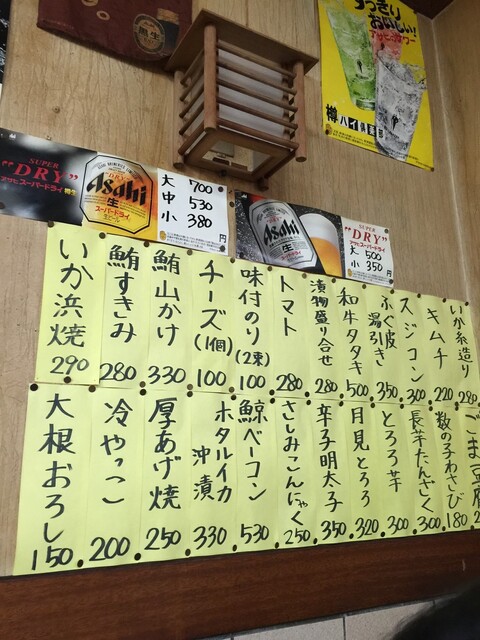 黒生
すっきり
おいしい!
アサヒサワー
樽ハイ倶楽部
SUPER
"DRY"
アサヒスーパードライ 樽生
Asahi
生
スーパードライ
大 700
中 530
小 380
円
Asahi
生
SUPER
"DRY"
大 500
小 350
円
いか糸造り 280
キムチ 220
スジコン 300
ふぐ皮湯引き 350
和牛タタキ 500
漬物盛り合せ 280
トマト 280
味付のり(2束) 100
チーズ(1個) 100
鮪山かけ 330
鮪すきみ 280
いか浜焼 290
ごま豆腐
数の子わさび 180
長芋たんざく 300
とろろ芋 300
月見とろろ 320
辛子明太子 350
さしみこんにゃく 250
鯨ベーコン 530
ホタルイカ沖漬 330
厚あげ焼 250
冷やっこ 200
大根おろし 150